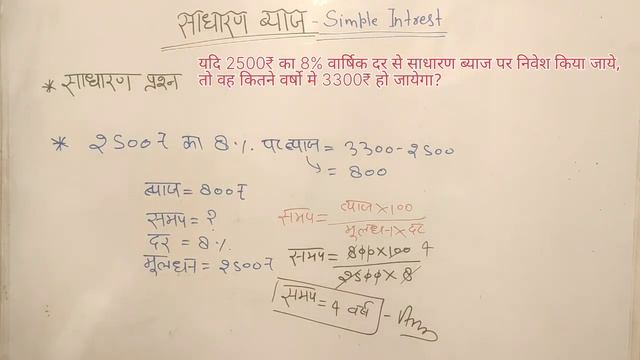 साधारण ब्याज - Simple Intrest
यदि 2500₹ का 8% वार्षिक दर से साधारण ब्याज पर निवेश किया जाये,
तो वह कितने वर्षो मे 3300₹ हो जायेगा?
* साधारण प्रश्न
* 2500₹ का 8% पर ब्याज = 3300-2500
= 800
ब्याज = 800₹
समय = ?
दर = 8%
मूलधन = 2500₹
समय = ब्याज×100 / मूलधन×दर
समय = 800×100 4 / 2500×8
समय = 4 वर्ष - Ans